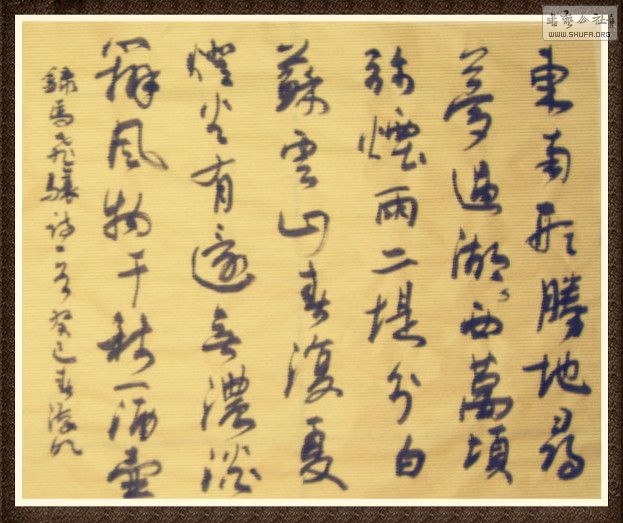 東南形勝地尋
夢過湖西萬頃
煙雨二堤分白
蘇雲山春復夏
燈火有還無濃淡
風物千秋一酒壺
錄馬飛驤詩一首癸巳春
书艺公社
WWW.SHUFA.ORG